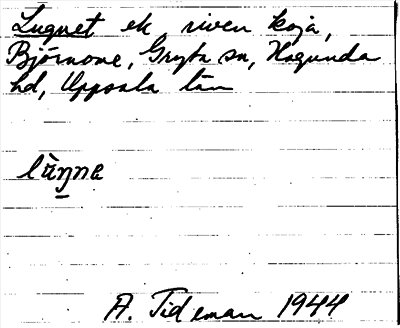 Lugnet ek riven koja,
Björnome, Gryta sn, Hagunda
hd, Uppsala län
lùŋnə
A. Tideman 1944